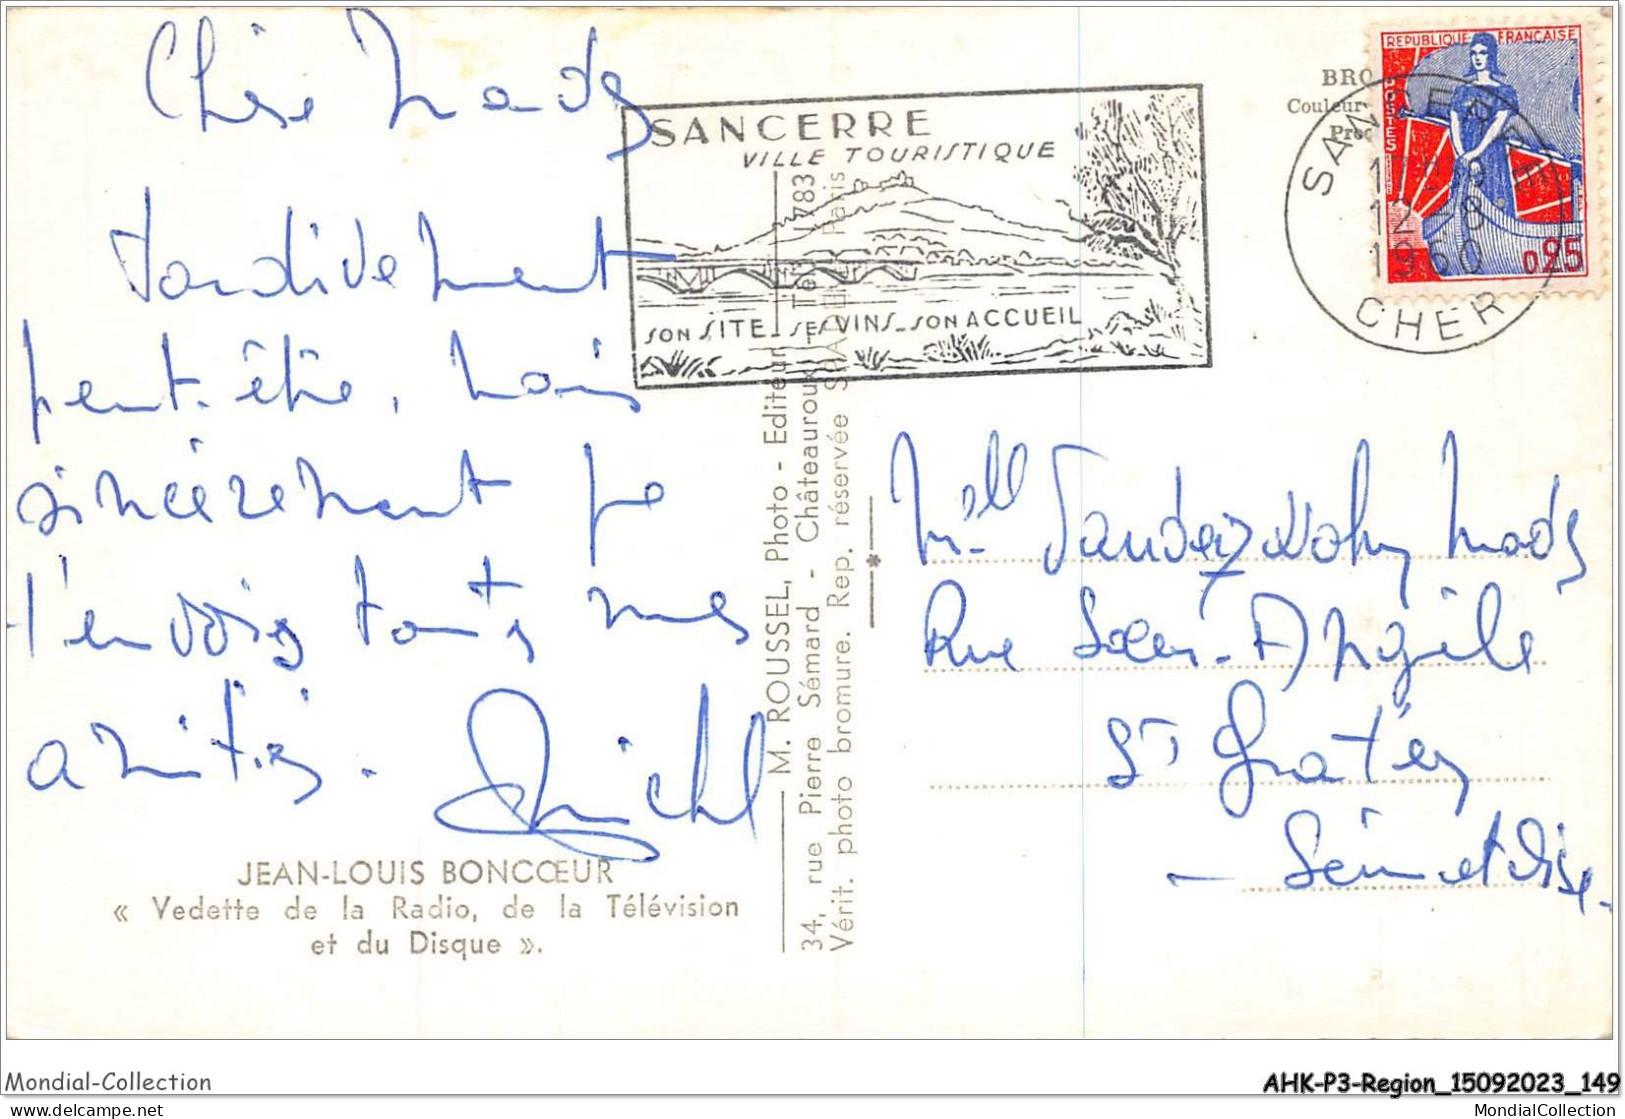 Chère Mady
tardivement
peut-être, mais
sincèrement je
t'envois toutes mes
amitiés.
Michel
JEAN-LOUIS BONCŒUR
« Vedette de la Radio, de la Télévision
et du Disque ».
M. ROUSSEL, Photo - Editeur
34, rue Pierre Sémard - Châteauroux - Tél. 783
Vérit. photo bromure. Rep. réservée Paris
SANCERRE
VILLE TOURISTIQUE
SON SITE - SES VINS - SON ACCUEIL
BRO
Couleur
REPUBLIQUE FRANÇAISE
POSTES
0,25
SANCERRE
12-8
1960
CHER
Mell Mady
Rue
St Gratien
- Seine et Oise -
Mondial-Collection
AHK-P3-Region_15092023_149
www.delcampe.net
MondialCollection